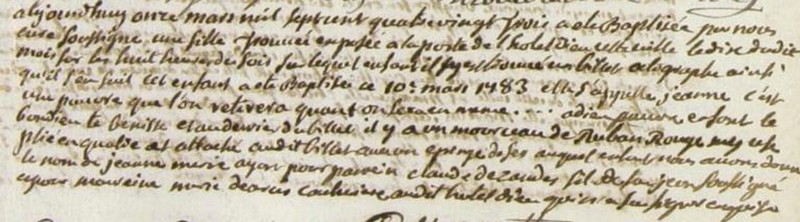 aujourdhuy onze mars mil sept cent quatre vingt trois a ete Baptisée par nous
curé soussigné une fille trouvée exposée a la porte de l'hotel Dieu cette ville le dix dudit
mois sur les huit heures du soir sur lequel enfant il s'y est trouvé un billet ortographé ainsi
qu'il s'en suit cet enfant a ete Baptisée ce 10e mars 1783 elle s'appelle jeanne c'est
une pauvre que l'on retirera quant on sera en meme ... adieu pauvre enfant le
bondieu te Benisse et au du billet il y a un mourceau de Ruban Rouge mes use
plié en quatre et attaché audit billet avec un epingle auquel enfant nous avons donné
le nom de jeanne marie ayant pour parein claude fil de jean soussigné
et pour mareine marie cuisiniere audit hotel dieu qui